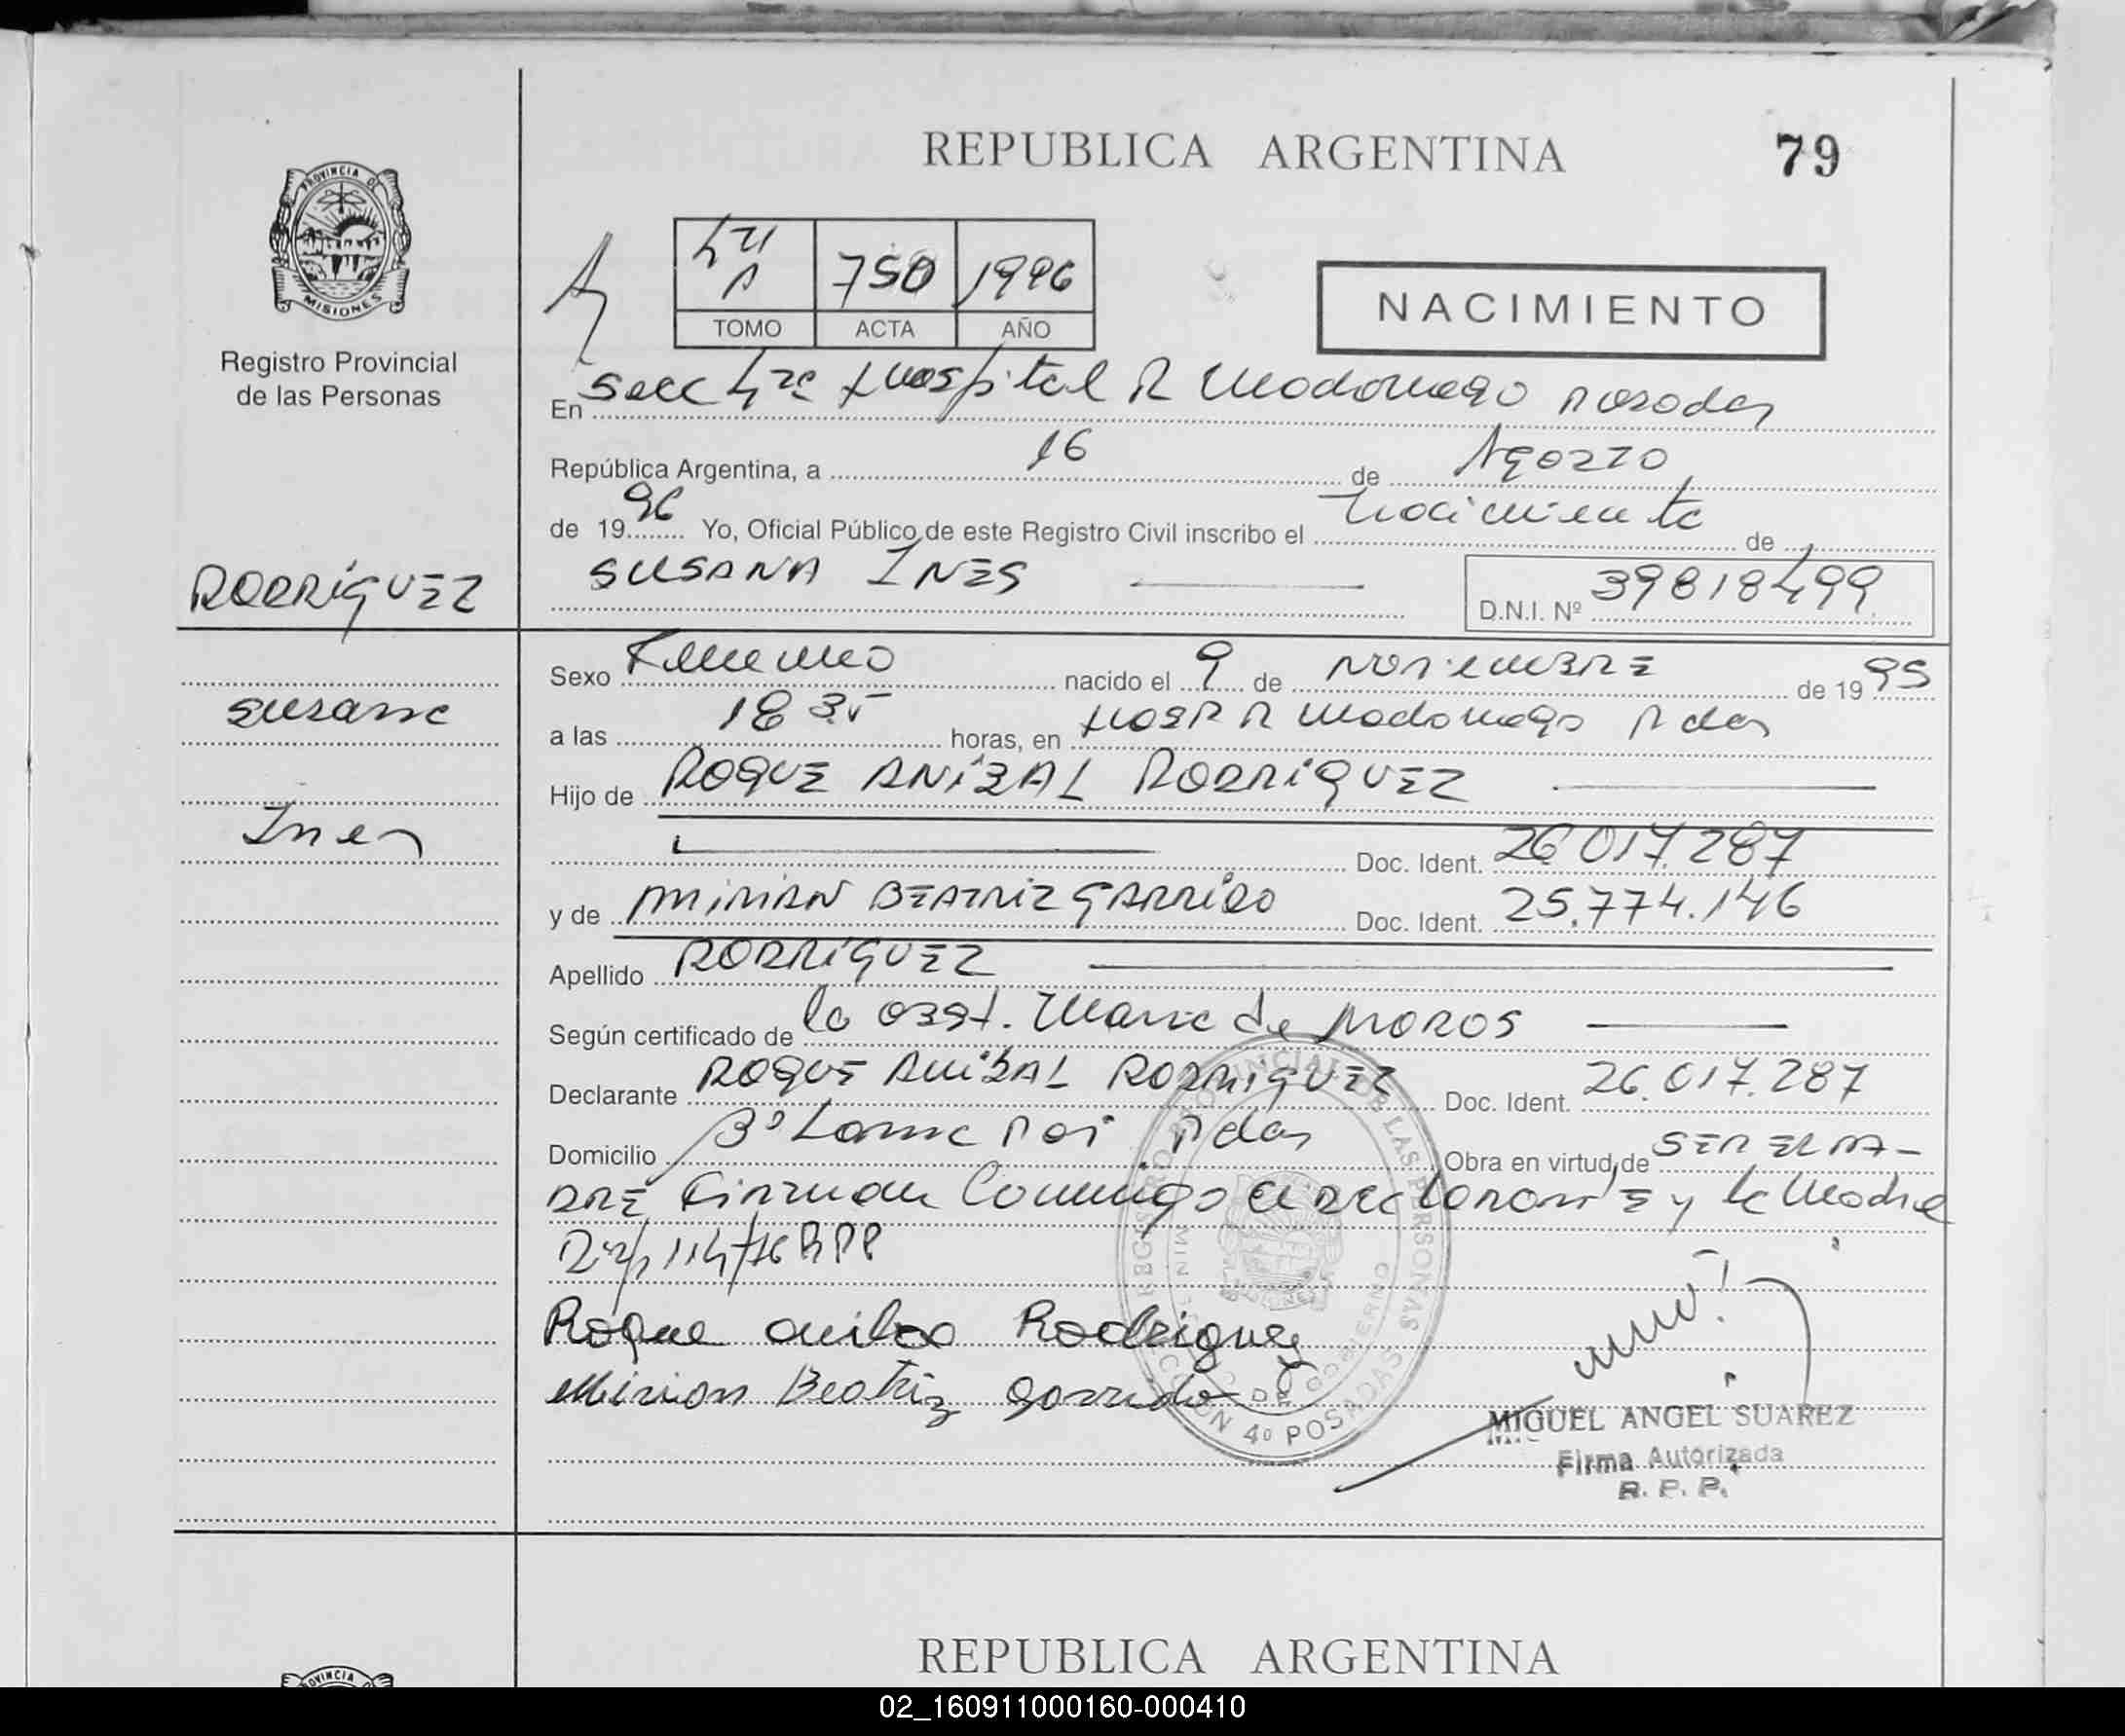 REPUBLICA ARGENTINA
79
PROVINCIA DE
MISIONES
Registro Provincial
de las Personas
4ta
A 750 1996
TOMO ACTA AÑO
NACIMIENTO
En Secc 4ta Hospital R Madariaga Posadas
República Argentina, a 16 de Agosto
de 1996 Yo, Oficial Público de este Registro Civil inscribo el nacimiento de
RODRIGUEZ
SUSANA INES
D.N.I. Nº 39818499
Susana
Ines
Sexo Femenino nacido el 9 de NOVIEMBRE de 1995
a las 18 35 horas, en HOSP R Madariaga Pdas
Hijo de ROQUE ANIBAL RODRIGUEZ
Doc. Ident. 26.017.287
y de MIRIAN BEATRIZ GARRIDO Doc. Ident. 25.774.146
Apellido RODRIGUEZ
Según certificado de la Obst. Maria de MOROS
Declarante ROQUE ANIBAL RODRIGUEZ Doc. Ident. 26.017.287
Domicilio Bº Pdas Obra en virtud de SER EL PA-
DRE Firman Conmigo el DECLARANTE y la Madre
114/76 RPP
Roque anibal Rodriguez
Mirian Beatriz garrido
REGISTRO PROVINCIAL DE LAS PERSONAS
MINISTERIO DE GOBIERNO
SECCION 4º POSADAS
MIGUEL ANGEL SUAREZ
Firma Autorizada
R. P. P.
REPUBLICA ARGENTINA
PROVINCIA
02_160911000160-000410